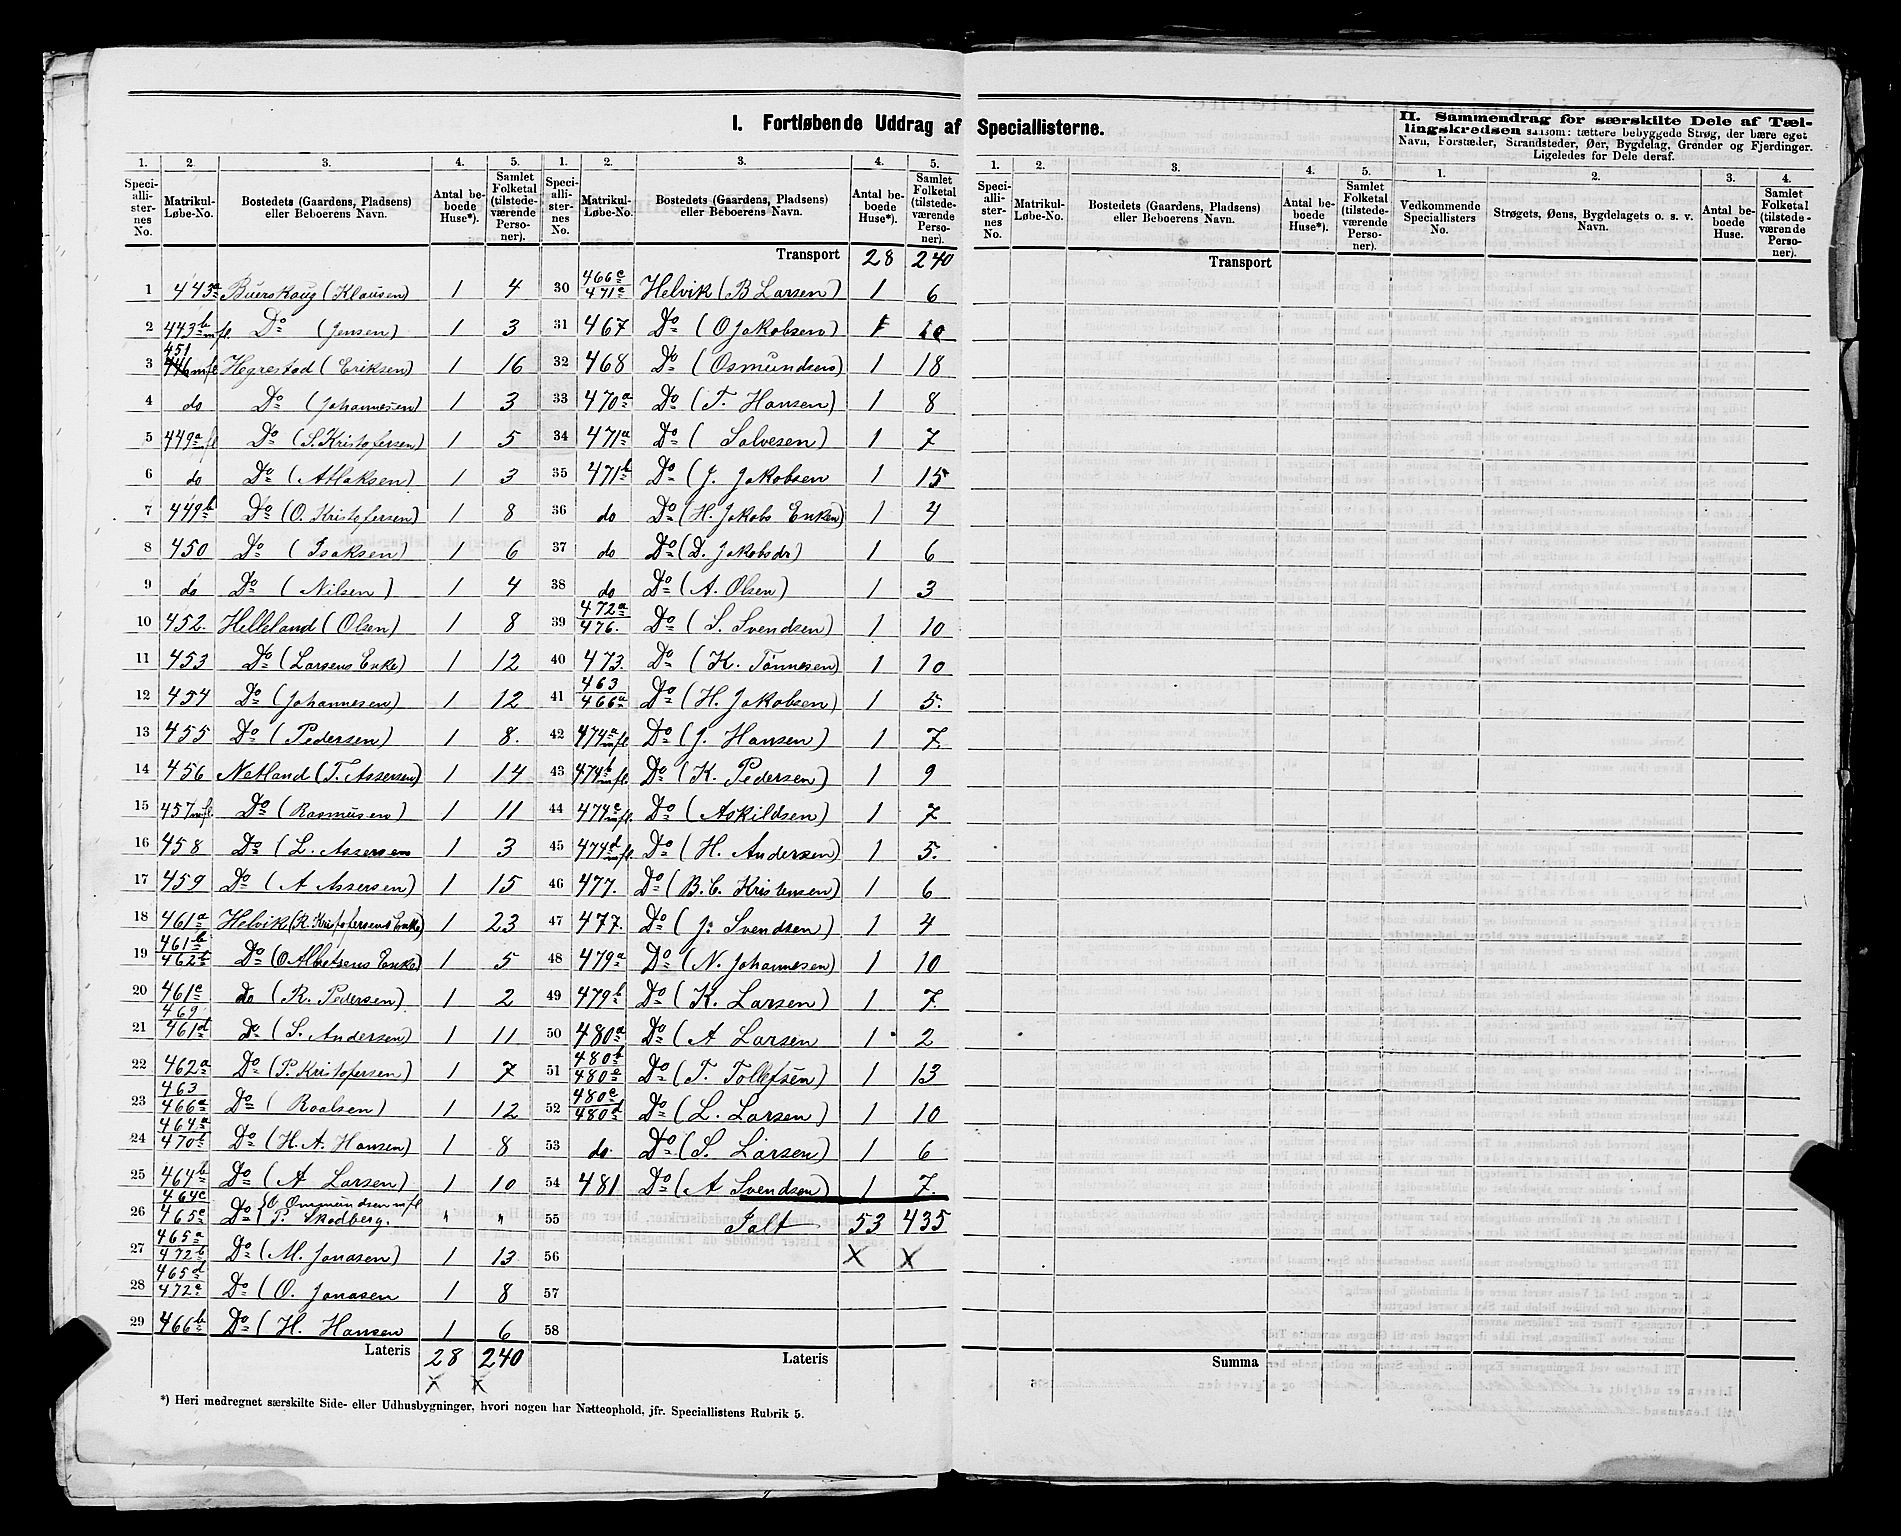 I. Fortløbende Uddrag af Speciallisterne.
II. Sammendrag for særskilte Dele af Tæl-
lingskredsen saasom: tættere bebyggede Strøg, der bære eget
Navn, Forstæder, Strandsteder, Øer, Bygdelag, Grender og Fjerdinger.
Ligeledes for Dele deraf.
1. 2. 3. 4. 5. 1. 2. 3. 4. 5. 1. 2. 3. 4. 5. 1. 2. 3. 4.
Speciallisternes No. Matrikul-Løbe-No. Bostedets (Gaardens, Pladsens) eller Beboerens Navn. Antal beboede Huse*). Samlet Folketal (tilstedeværende Personer).
Speciallisternes No. Matrikul-Løbe-No. Bostedets (Gaardens, Pladsens) eller Beboerens Navn. Antal beboede Huse*). Samlet Folketal (tilstedeværende Personer).
Speciallisternes No. Matrikul-Løbe-No. Bostedets (Gaardens, Pladsens) eller Beboerens Navn. Antal beboede Huse*). Samlet Folketal (tilstedeværende Personer).
Vedkommende Speciallisters No. Strøgets, Øens, Bygdelagets o. s. v. Navn. Antal beboede Huse. Samlet Folketal (tilstedeværende Personer).
1 443a Buerskaug (Klausen) 1 4
2 443b mfl Do (Jensen) 1 3
3 451 mfl Hegrestad (Eriksen) 1 16
4 do Do (Johannesen) 1 3
5 449a fl Do (S. Kristofersen) 1 5
6 do Do (Atlaksen) 1 3
7 449b Do (O. Kristofersen) 1 8
8 450 Do (Isaksen) 1 6
9 do Do (Nilsen) 1 4
10 452. Helleland (Olsen) 1 8
11 453 Do (Larsens Enke) 1 12
12 454 Do (Johannesen) 1 12
13 455 Do (Pedersen) 1 8.
14 456 Netland (T. Assersen) 1 14
15 457 mfl. Do (Rasmusen) 1 11
16 458 Do (L. Assersen 1 3
17 459 Do (A Assersen) 1 15
18 461a Helvik (R. Kristofersens Enke) 1 23
19 461b 462b Do (O Albretsens Enke) 1 5
20 461c do (R. Pedersen) 1 2
21 469 461d Do (S. Andersen) 1 11
22 462a Do (P. Kristofersen) 1 7
23 463 466a Do (Roalsen) 1 12
24 464a 470b Do (H. A. Hansen) 1 8
25 464b Do (A Larsen) 1 10
26 464c 465c Do (O Ommundsen mfl T. Skadberg. " "
27 465a 472b Do (M. Jonasen) 1 13
28 465d 472c Do (O. Jonasen 1 8
29 466b Do (H. Hansen 1 6
Lateris 28 240
X X
Transport 28 240
30 466c 471c Helvik (B Larsen) 1 6
31 467 Do (O Jakobsen) 1 10
32 468 Do (Osmundsen) 1 18
33 470a Do (T. Hansen) 1 8
34 471a Do (Salvesen) 1 7
35 471b Do (J. Jakobsen 1 15
36 do Do (H. Jakobs Enken) 1 4
37 do Do (D. Jakobsdr) 1 6
38 do Do (A. Olsen) 1 3
39 472a 476. Do (S. Svendsen) 1 10
40 473. Do (K. Tönnesen) 1 10
41 463 466a Do (H. Jakobsen) 1 5.
42 474a mfl Do (J. Hansen) 1 7
43 474b mfl. Do (K. Pedersen) 1 9
44 474c mfl. Do (Askildsen) 1 7
45 474d mfl. Do (H. Andersen) 1 5.
46 477. Do (B. C. Kristensen) 1 6
47 477. Do (J. Svendsen) 1 4
48 479a Do (N. Johannesen) 1 10
49 479b Do (K. Larsen) 1 7.
50 480a Do (A Larsen 1 2
51 480b 480e Do (T. Tollefsen) 1 13
52 480c 480d Do (L. Larsen) 1 10
53 do Do (S. Larsen) 1 6
54 481 Do (A Svendsen) 1 7.
55 Ialt 53 435
56 X X
57
58
Lateris
Transport
Summa
*) Heri medregnet særskilte Side- eller Udhusbygninger, hvori nogen har Natteophold, jfr. Speciallistens Rubrik 5.